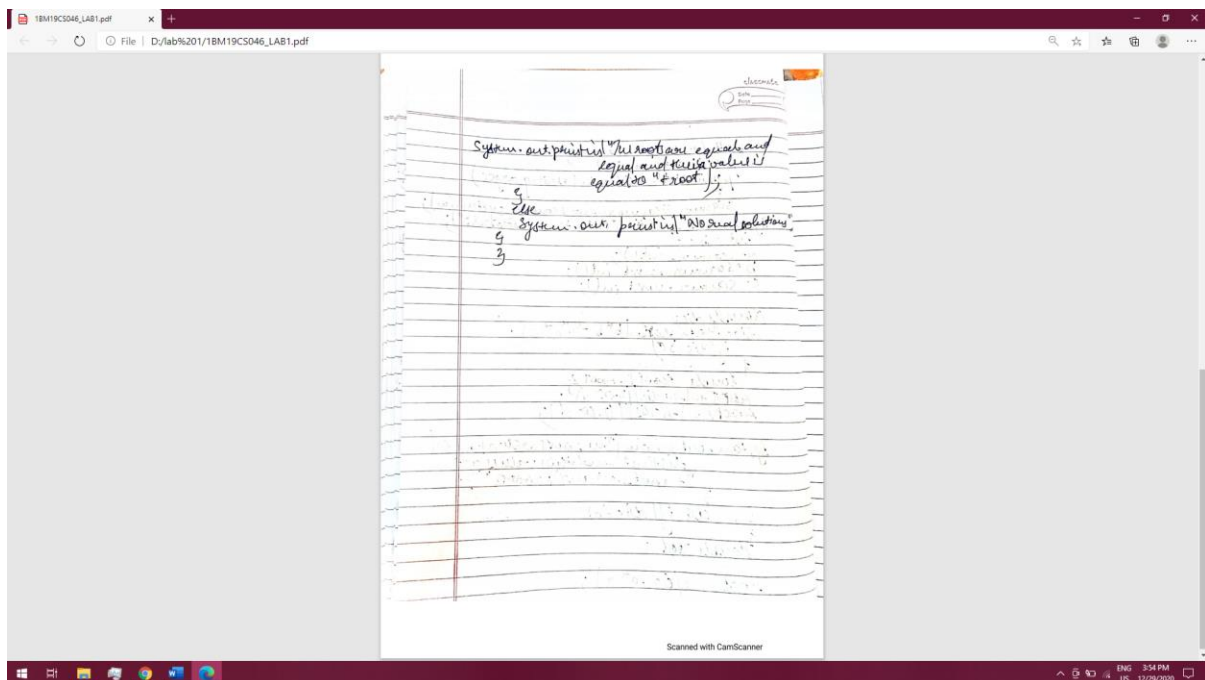 1BM19CS046_LAB1.pdf
File | D:/lab%201/1BM19CS046_LAB1.pdf
classmate
Date
Page
System.out.println("The roots are equal and
equal and their value is
equal to "+root);
}
else
System.out.println("No real solutions"
}
}
Scanned with CamScanner
ENG 3:54 PM
US 12/29/2020